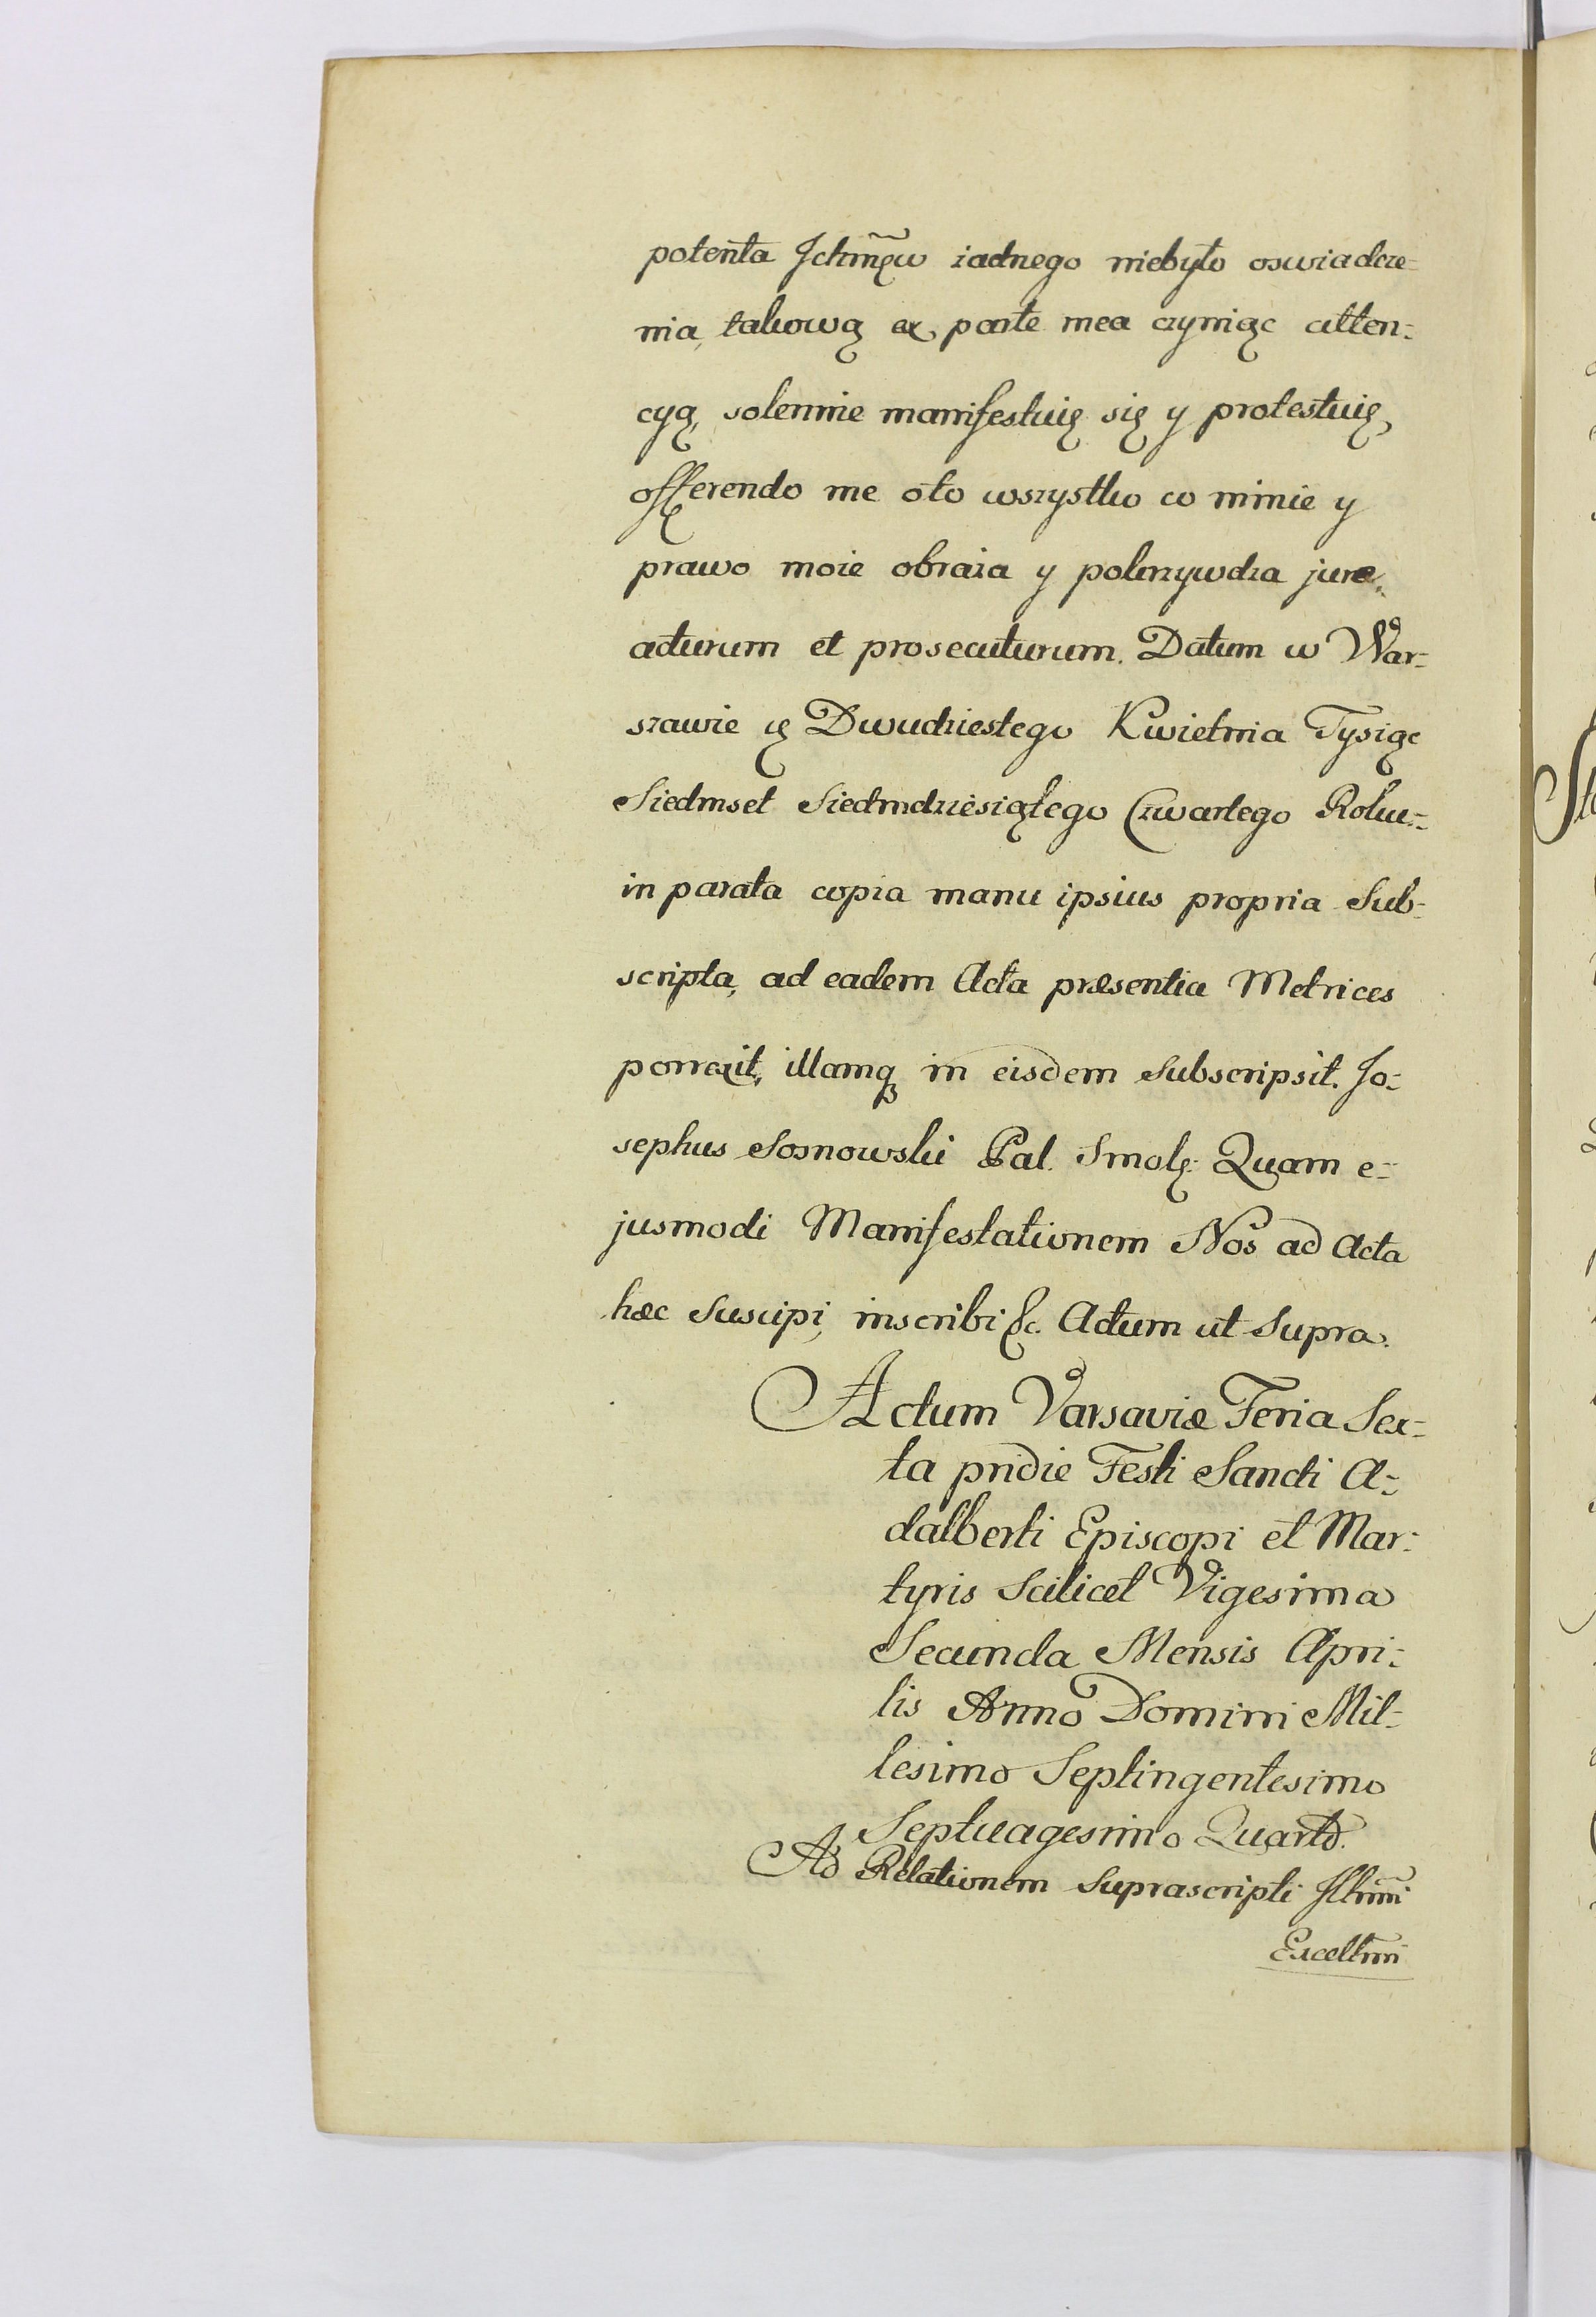 potenta Ichmęw żadnego niebyło oswiadcze-
nia, takową ex parte mea czyniąc atten-
cyą, solennie manifestuię się y protestuię,
offerendo me oto wszystko co mnie y
prawo moie obraża y pokrzywdza jure
acturum et prosecuturum. Datum w War-
szawie Dwudziestego Kwietnia Tysiąc
Siedmset Siedmdziesiątego Czwartego Roku:
in parata copia manu ipsius propria Sub-
scripta, ad eadem Acta præsentia Metrices
porrexit, illamq in eisdem subscripsit. Jo-
sephus Sosnowski Pal. Smol: Quam e-
jusmodi Manifestationem Nos ad Acta
hæc Suscipi, inscribi &c. Actum ut Supra.
Actum Varsaviæ Feria Sex-
ta pridie Festi Sancti A-
dalberti Episcopi et Mar-
tyris Scilicet Vigesima
Secunda Mensis Apri-
lis Anno Domini Mil-
lesimo Septingentesimo
Septuagesimo Quarto.
Ad Relationem Suprascripti Illmi
Excellmi